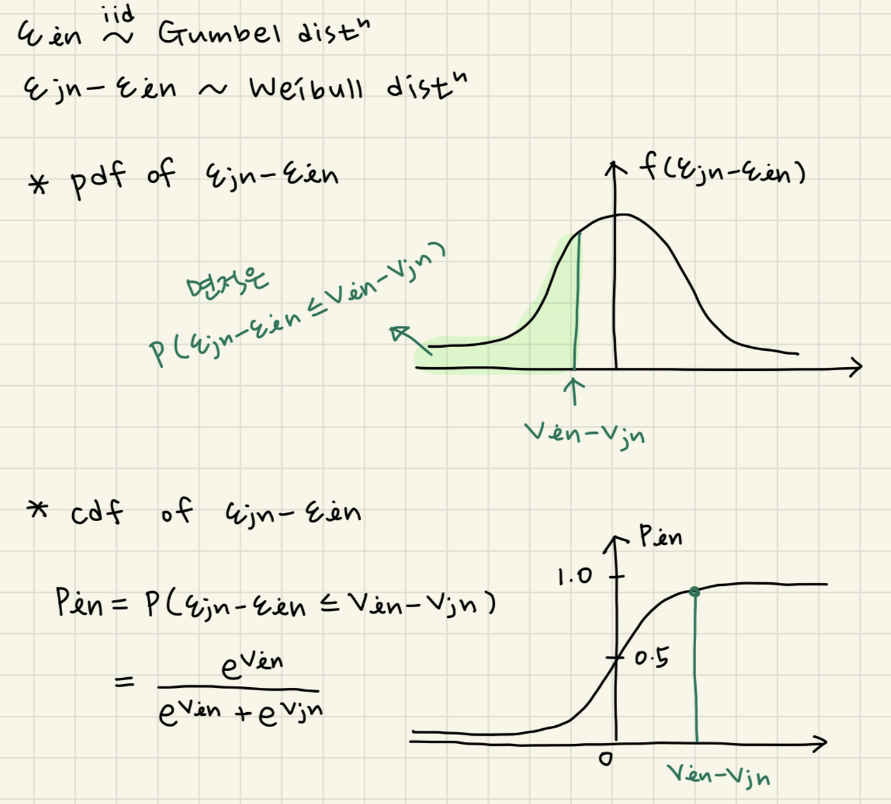 εin iid ~ Gumbel distⁿ
εjn-εin ~ Weibull distⁿ
* pdf of εjn-εin
f(εjn-εin)
면적은
P(εjn-εin ≤ Vin-Vjn)
Vin-Vjn
* cdf of εjn-εin
Pin
1.0
Pin = P(εjn-εin ≤ Vin-Vjn)
0.5
= e^Vin / (e^Vin + e^Vjn)
0
Vin-Vjn